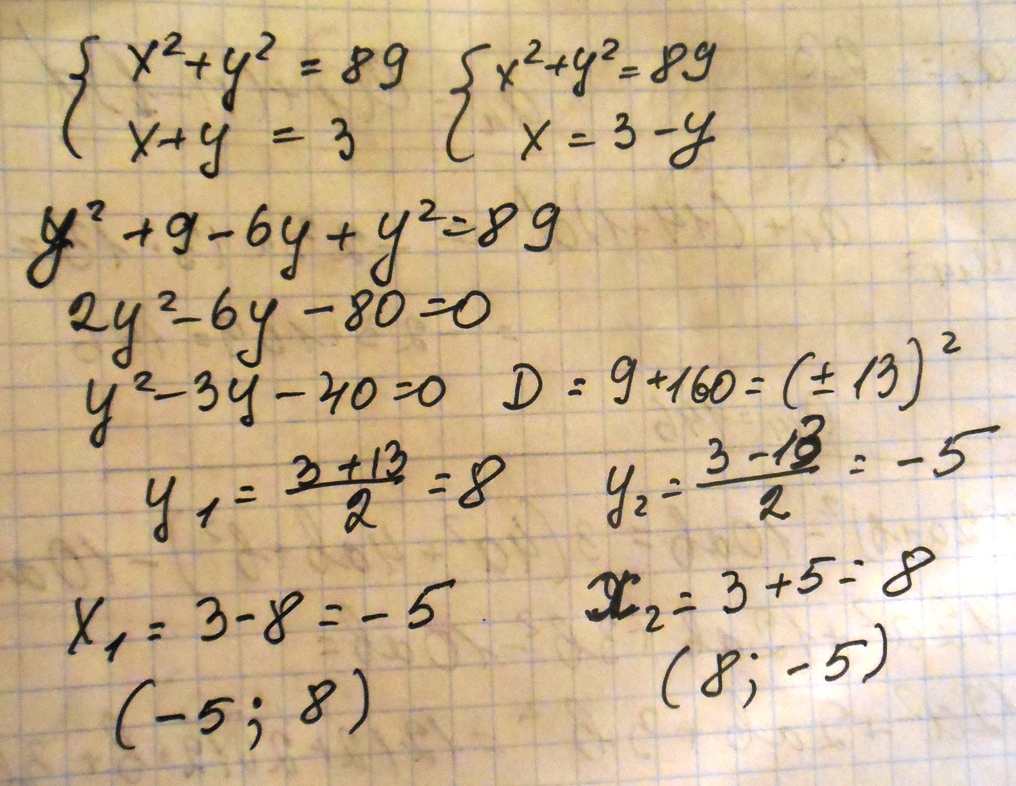 { x² + y² = 89 { x² + y² = 89
x + y = 3 x = 3 - y
y² + 9 - 6y + y² = 89
2y² - 6y - 80 = 0
y² - 3y - 40 = 0 D = 9 + 160 = (± 13)²
y₁ = (3 + 13)/2 = 8 y₂ = (3 - 13)/2 = -5
x₁ = 3 - 8 = -5 x₂ = 3 + 5 = 8
(-5; 8) (8; -5)